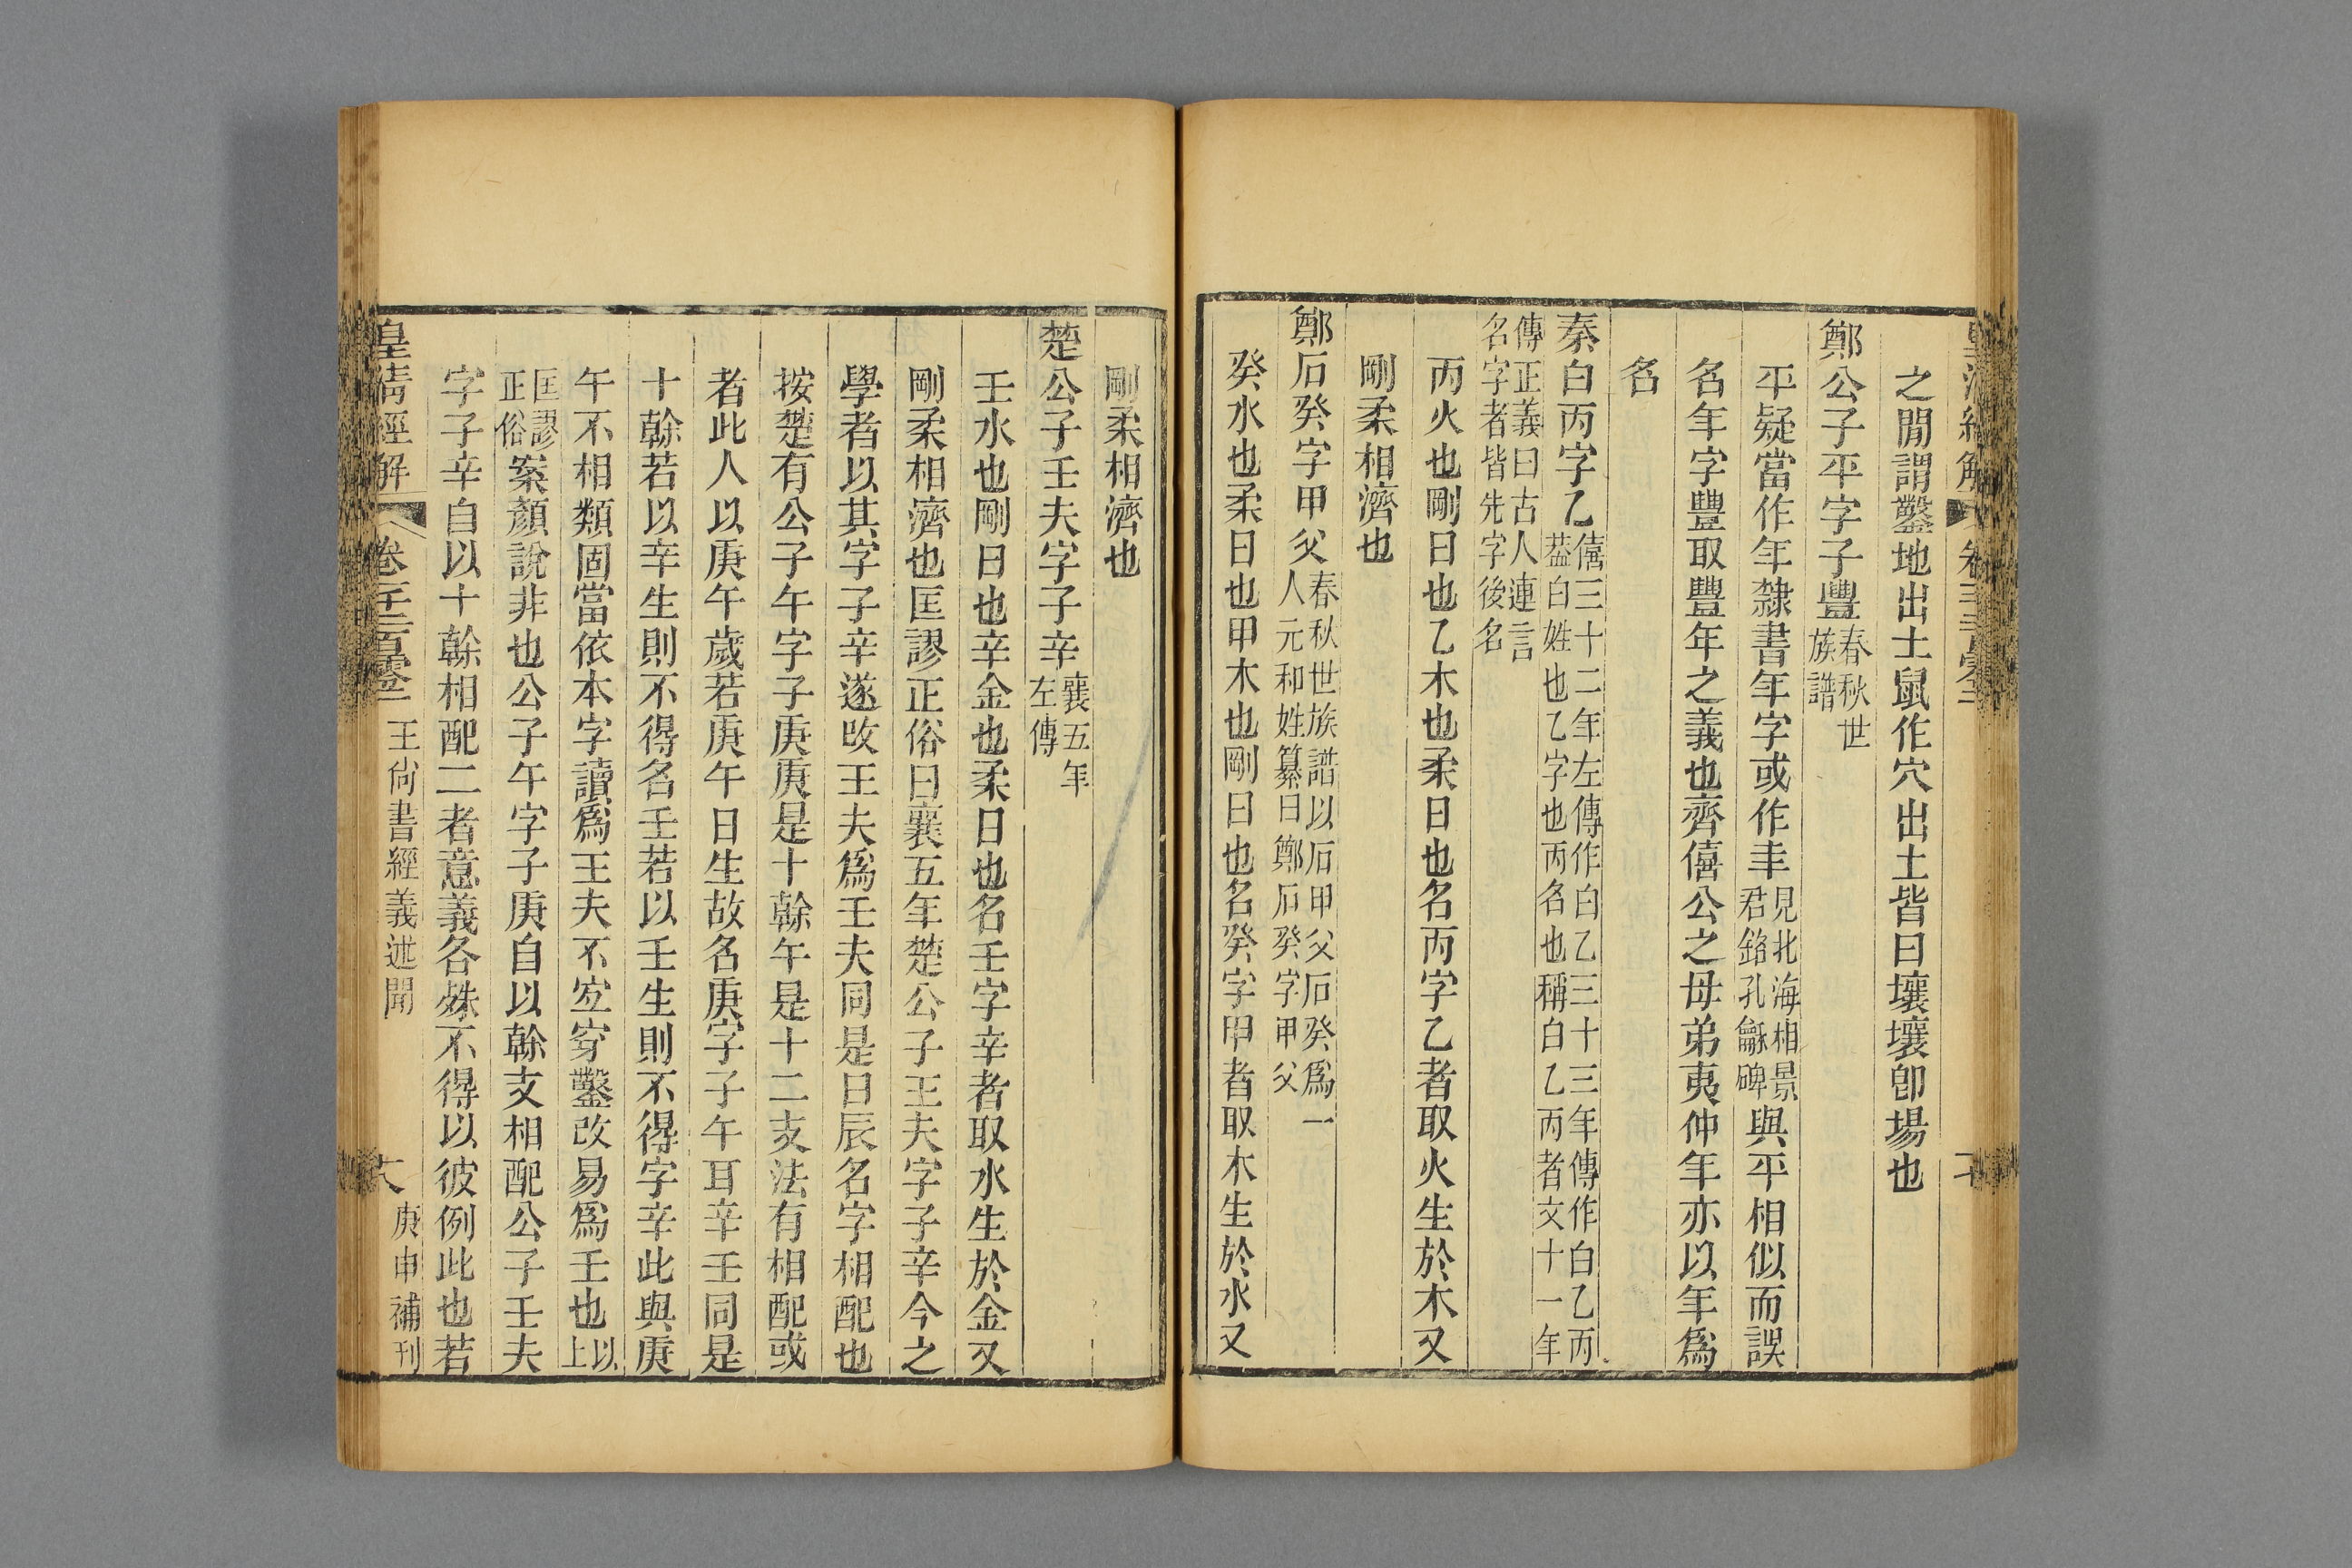 之閒謂鑿地出土鼠作穴出土皆曰壤壤卽場也
鄭公子平字子豐春秋世族譜
平疑當作年隸書年字或作𠦑見北海相景君銘孔龢碑與平相似而誤
名年字豐取豐年之義也齊僖公之母弟夷仲年亦以年爲
名
秦白丙字乙僖三十二年左傳作白乙三十三年傳作白乙丙葢白姓也乙字也丙名也稱白乙丙者文十一年
傳正義曰古人連言名字者皆先字後名
丙火也剛日也乙木也柔日也名丙字乙者取火生於木又
剛柔相濟也
鄭石癸字甲父春秋世族譜以石甲父石癸爲一人元和姓纂曰鄭石癸字甲父
癸水也柔日也甲木也剛日也名癸字甲者取木生於水又
剛柔相濟也
楚公子壬夫字子辛襄五年左傳
壬水也剛日也辛金也柔日也名壬字辛者取水生於金又
剛柔相濟也匡謬正俗曰襄五年楚公子王夫字子辛今之
學者以其字子辛遂改王夫爲壬夫同是日辰名字相配也
按楚有公子午字子庚庚是十榦午是十二支法有相配或
者此人以庚午歲若庚午日生故名庚字子午耳辛壬同是
十榦若以辛生則不得名壬若以壬生則不得字辛此與庚
午不相類固當依本字讀爲王夫不宜穿鑿改易爲壬也以上
匡謬正俗案顏說非也公子午字子庚自以榦支相配公子壬夫
字子辛自以十榦相配二者意義各殊不得以彼例此也若
皇清經解 卷一千二百零一 王尙書經義述聞 六 庚申補刊